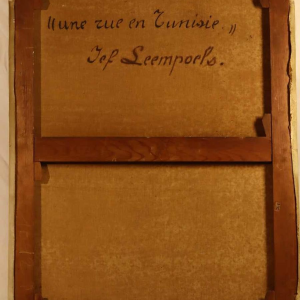 „une rue en Tunisie„
Jef Leempoels.